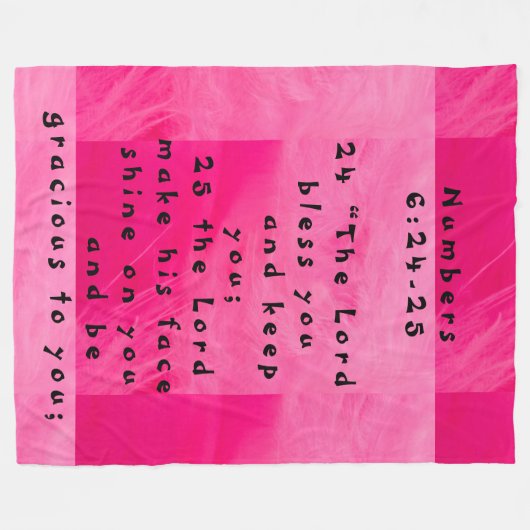 Numbers
6:24-25
24 “The Lord
bless you
and keep
you;
25 the Lord
make his face
shine on you
and be
gracious to you;